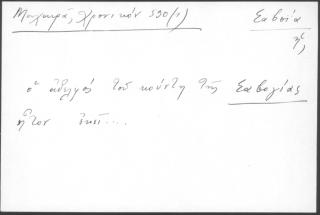 Μαχαιρά, Χρονικόν 530(1)
Σαβοΐα
ἡ,
ὁ ἀδελφός τοῦ κούντη τῆς Σαβογίας
ἦτον ἐκεῖ....